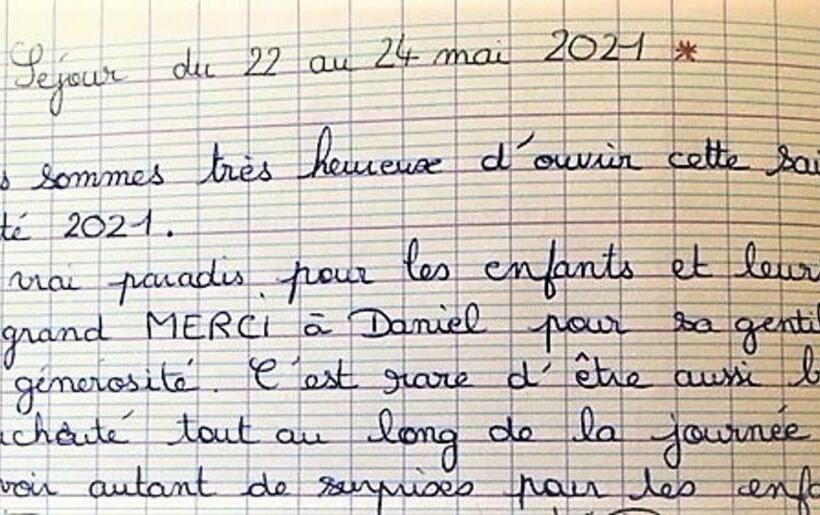 Séjour du 22 au 24 mai 2021 *
s sommes très heureux d'ouvrir cette sai
té 2021.
vrai paradis pour les enfants et leur
grand MERCi à Daniel pour sa gentil
générosité. C'est rare d'être aussi b
uchouté tout au long de la journée
voir autant de surprises pour les enfa